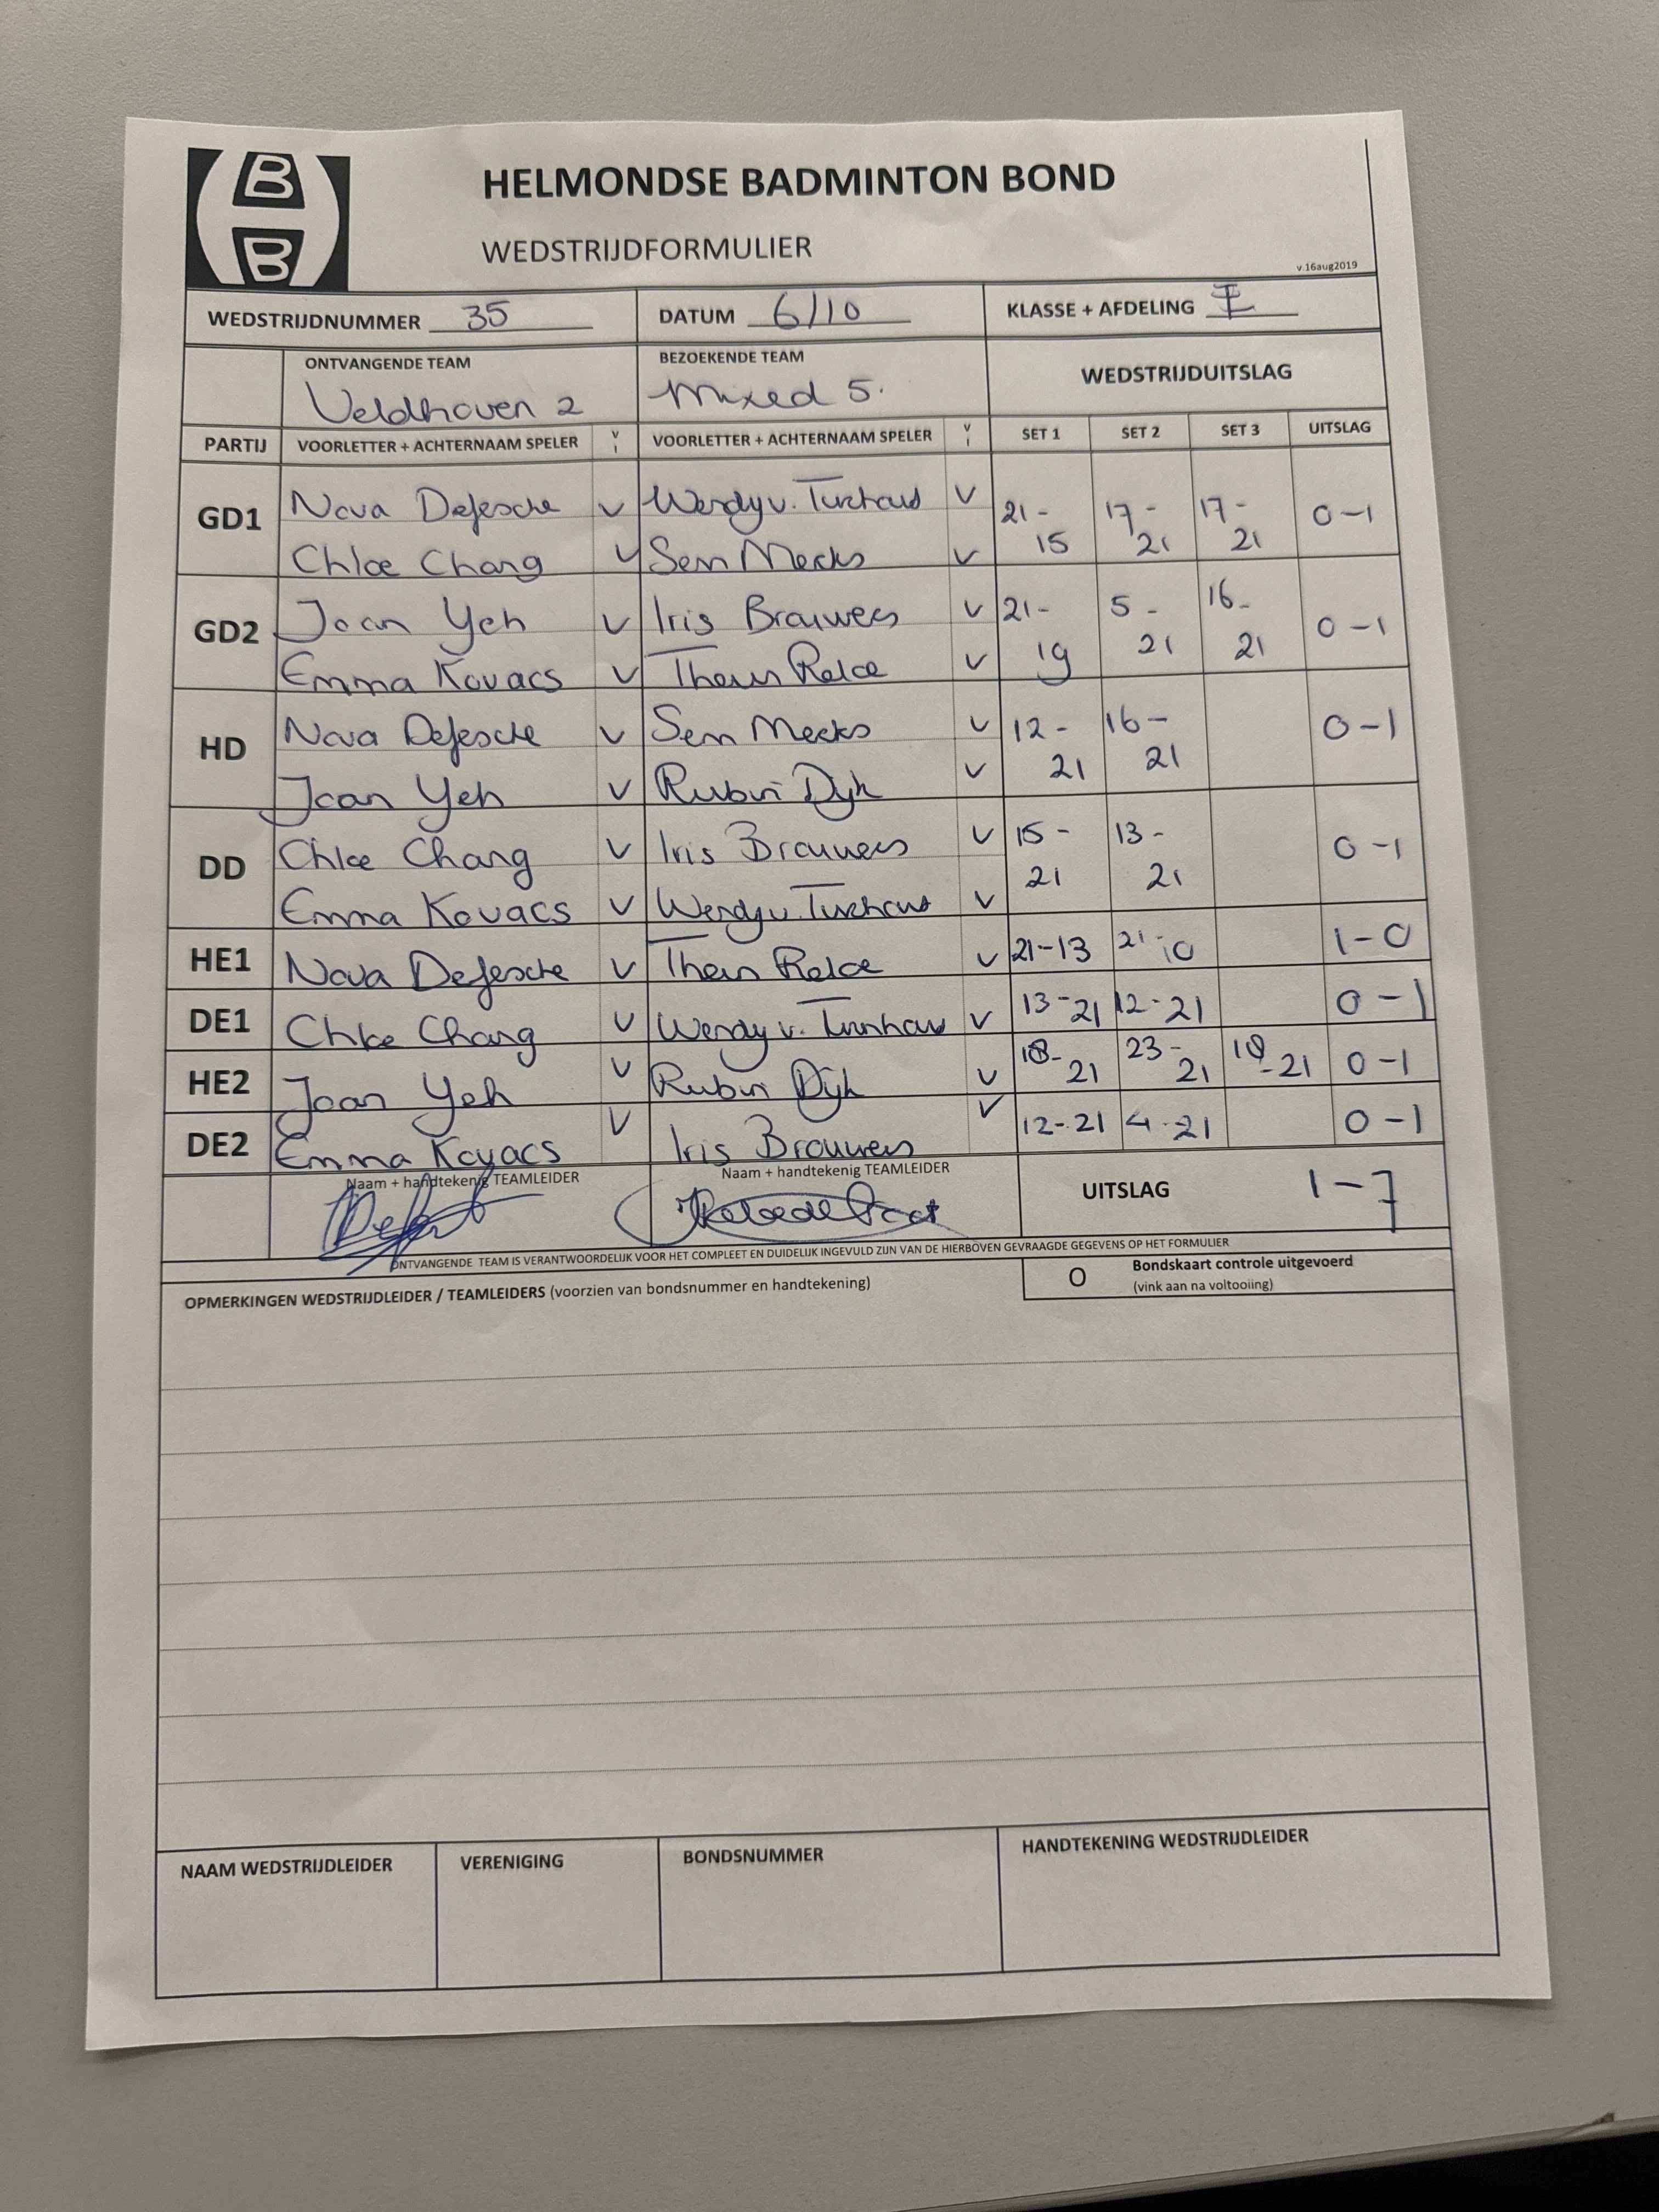 B
B
HELMONDSE BADMINTON BOND
WEDSTRIJDFORMULIER
v.16aug2019
WEDSTRIJDNUMMER 35 DATUM 6/10 KLASSE + AFDELING I
ONTVANGENDE TEAM BEZOEKENDE TEAM WEDSTRIJDUITSLAG
Veldhoven 2 Mixed 5.
PARTIJ VOORLETTER + ACHTERNAAM SPELER V I VOORLETTER + ACHTERNAAM SPELER V I SET 1 SET 2 SET 3 UITSLAG
GD1 Nova Defesche V Wendy v. Turnhout V 21-15 17-21 17-21 0-1
Chloe Chang V Sem Meeks V
GD2 Joan Yeh V Iris Brouwers V 21-19 5-21 16-21 0-1
Emma Kovacs V V
HD Nova Defesche V Sem Meeks V 12-21 16-21 0-1
Joan Yeh V Rubin Dijk V
DD Chloe Chang V Iris Brouwers V 15-21 13-21 0-1
Emma Kovacs V Wendy v. Turnhout V
HE1 Nova Defesche V V 21-13 21-10 1-0
DE1 Chloe Chang V Wendy v. Turnhout V 13-21 12-21 0-1
HE2 Joan Yeh V Rubin Dijk V 18-21 23-21 -21 0-1
DE2 Emma Kovacs V Iris Brouwers V 12-21 4-21 0-1
Naam + handtekenig TEAMLEIDER Naam + handtekenig TEAMLEIDER
UITSLAG 1-7
ONTVANGENDE TEAM IS VERANTWOORDELIJK VOOR HET COMPLEET EN DUIDELIJK INGEVULD ZIJN VAN DE HIERBOVEN GEVRAAGDE GEGEVENS OP HET FORMULIER
OPMERKINGEN WEDSTRIJDLEIDER / TEAMLEIDERS (voorzien van bondsnummer en handtekening) O Bondskaart controle uitgevoerd
(vink aan na voltooiing)
NAAM WEDSTRIJDLEIDER VERENIGING BONDSNUMMER HANDTEKENING WEDSTRIJDLEIDER